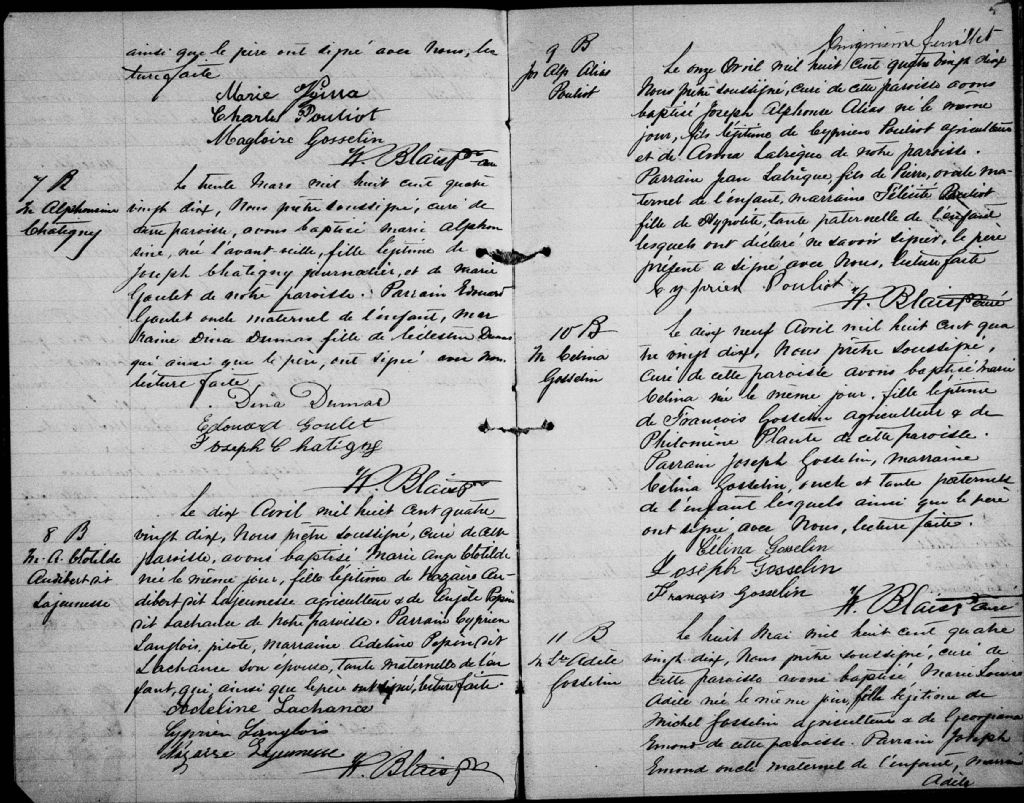 ainsi que le père ont signé avec Nous, lec
ture faite
Marie
Charles Pouliot
Magloire Gosselin
H. Blais ptre curé
7 B
M Alphonsine
Chatigny
Le trente Mars mil huit cent quatre
vingt dix, Nous prêtre soussigné, curé de
cette paroisse, avons baptisé marie Alphon
sine, née l'avant-veille, fille légitime de
Joseph Chatigny journalier, et de marie
Goulet de notre paroisse. Parrain Edouard
Goulet oncle maternel de l'enfant, mar
raine Dina Dumas fille de Célestin Dumas
qui ainsi que le père, ont signé avec Nous
lecture faite.
Dina Dumas
Edouard Goulet
Joseph Chatigny
H. Blais ptre
8 B
M. A. Clotilde
Audibert dit
Lajeunesse
Le dix Avril mil huit cent quatre
vingt dix, Nous prêtre soussigné, curé de cette
paroisse, avons baptisé Marie Ange Clotilde
née le même jour, fille légitime de Nazaire Au-
dibert dit Lajeunesse agriculteur & de Angèle Pepin
dit Lachance de notre paroisse. Parrain Cyprien
Langlois, pilote, marraine Adeline Pepin dit
Lachance son épouse, tante maternelle de l'en
fant, qui, ainsi que le père ont signé, lecture faite.
Adeline Lachance
Cyprien Langlois
Nazaire Lajeunesse
H. Blais ptre
5
Cinquième feuillet
9 B
Jos Alp Alias
Pouliot
Le onze Avril mil huit cent quatre vingt dix
Nous prêtre soussigné, curé de cette paroisse avons
baptisé Joseph Alphonse Alias né le même
jour, fils légitime de Cyprien Pouliot agriculteur
et de Anna Labrèque de notre paroisse.
Parrain Jean Labrèque fils de Pierre, oncle ma-
ternel de l'enfant, marraine Félicité Pouliot
fille de Hypolite, tante paternelle de l'enfant
lesquels ont déclaré ne savoir signer, le père
présent a signé avec Nous, lecture faite
Cyprien Pouliot
H. Blais ptre curé
10 B
M Celina
Gosselin
Le dix neuf Avril mil huit cent qua
tre vingt dix, Nous prêtre soussigné,
curé de cette paroisse avons baptisé marie
Celina née le même jour, fille légitime
de François Gosselin agriculteur & de
Philomène Plante de cette paroisse.
Parrain Joseph Gosselin, marraine
Celina Gosselin, oncle et tante paternels
de l'enfant lesquels ainsi que le père
ont signé avec Nous, lecture faite.
Célina Gosselin
Joseph Gosselin
François Gosselin
H. Blais ptre curé
11 B
M Lse Adèle
Gosselin
Le huit Mai mil huit cent quatre
vingt dix, Nous prêtre soussigné, curé de
cette paroisse avons baptisé Marie Louise
Adèle née le même jour, fille légitime de
Michel Gosselin agriculteur & de Georgiana
Emond de cette paroisse. Parrain Joseph
Emond oncle maternel de l'enfant, marraine
Adèle